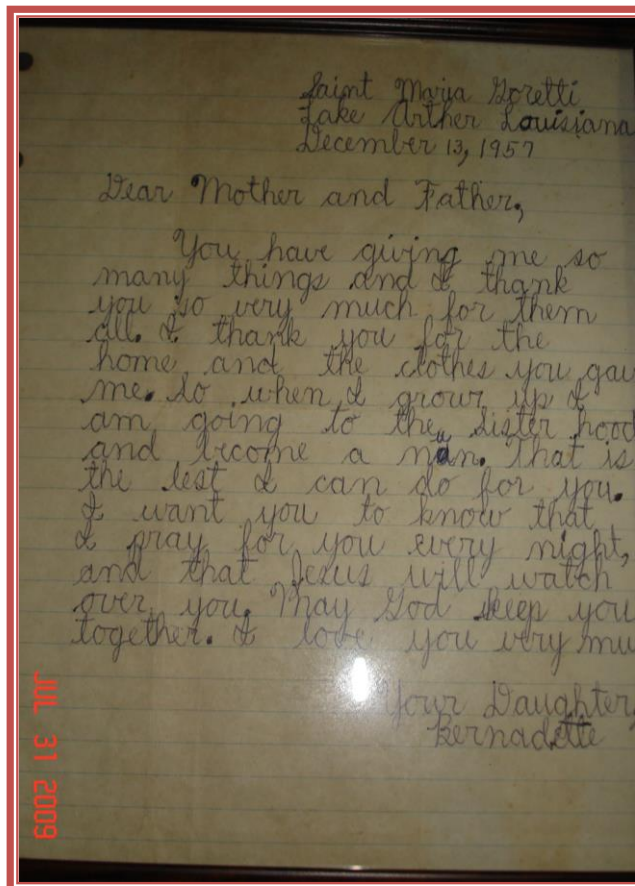 Saint Maria Goretti
Lake Arther Louisiana
December 13, 1957
Dear Mother and Father,
You have giving me so
many things and I thank
you so very much for them
all. I thank you for the
home and the clothes you gav
me. So when I grow up I
am going to the sister hood
and become a nun. That is
the best I can do for you.
I want you to know that
I pray for you every night,
and that Jesus will watch
over you. May God keep you
together. I love you very mu
Your Daughter,
Bernadette
JUL 31 2009